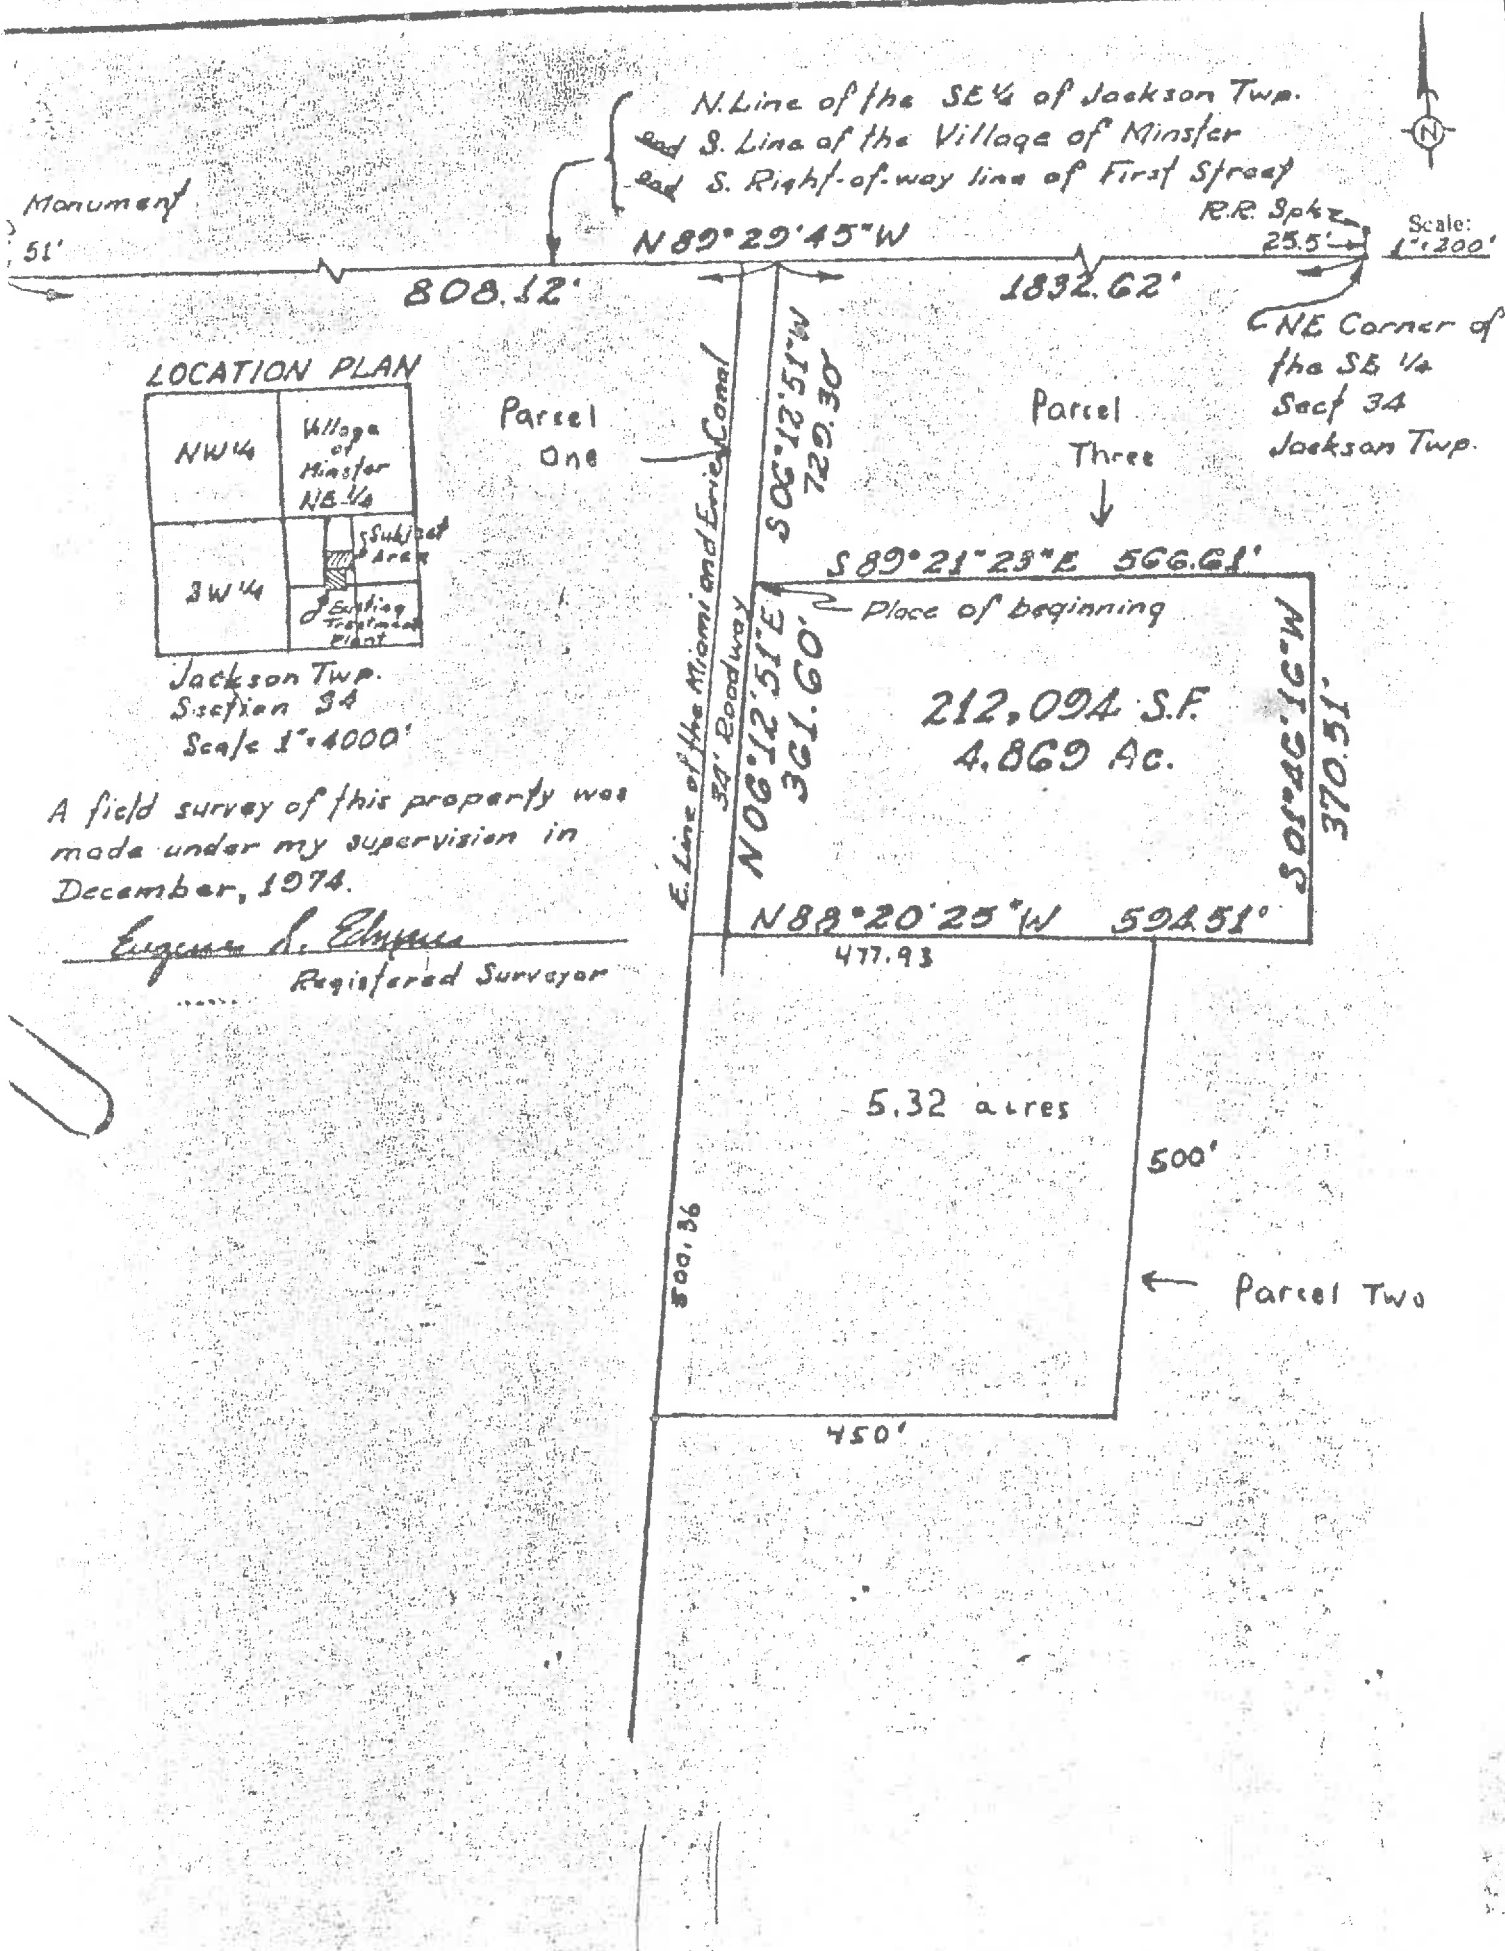 N. Line of the SE 1/4 of Jackson Twp.
and S. Line of the Village of Minster
and S. Right-of-way line of First Street
N
Monument
51'
R.R. Spke
25.5'
Scale:
1"=200'
N 89° 29' 45" W
808.12'
1832.62'
NE Corner of
the SE 1/4
Sect 34
Jackson Twp.
LOCATION PLAN
NW 1/4
Village
of
Minster
NE 1/4
Subject
Area
SW 1/4
Existing
Treatment
Plant
Jackson Twp.
Section 34
Scale 1"=4000'
Parcel
One
E. Line of the Miami and Erie Canal
34' Roadway
S 06° 12' 51" W
729.30'
Parcel
Three
S 89° 21' 23" E 566.61'
Place of beginning
N 06° 12' 51" E
361.60'
212,094 S.F.
4.869 Ac.
S 01° 46' 16" W
370.51'
N 88° 20' 25" W 594.51'
A field survey of this property was
made under my supervision in
December, 1974.
Registered Surveyor
477.93
5.32 acres
500'
500.36
Parcel Two
450'